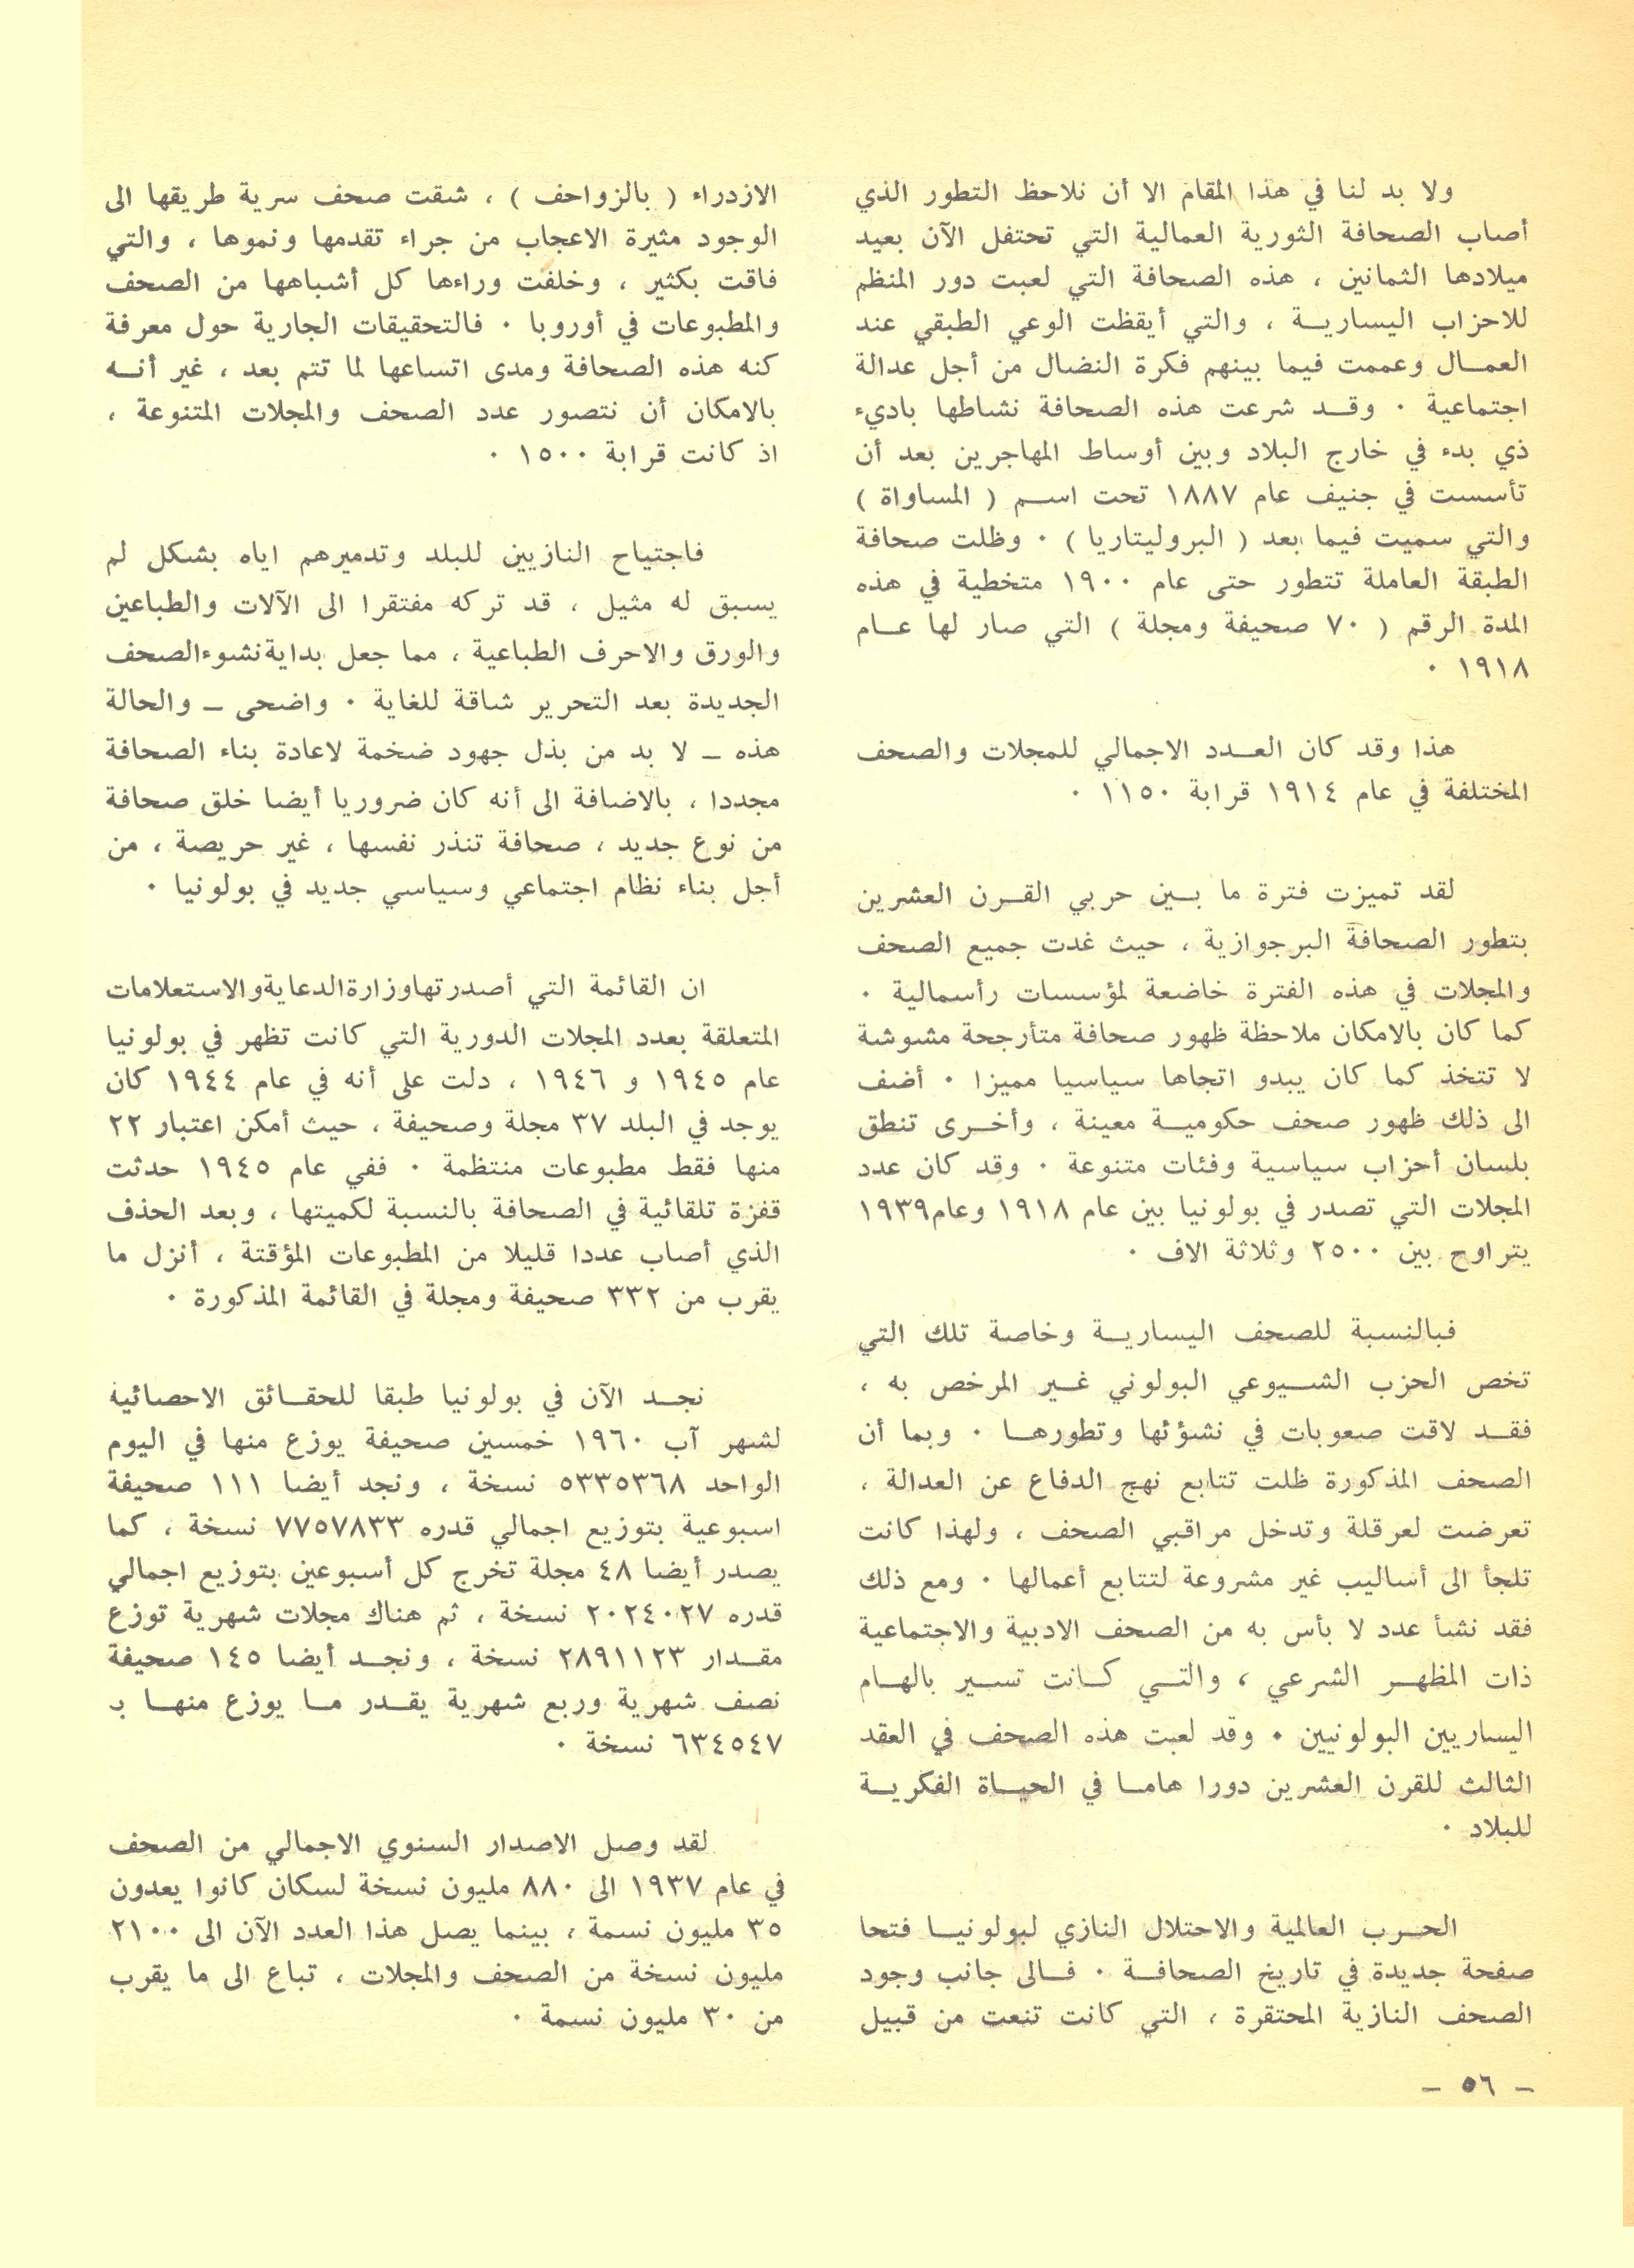 ولا بد لنا في هذا المقام الا أن نلاحظ التطور الذي
أصاب الصحافة الثورية العمالية التي تحتفل الآن بعيد
ميلادها الثمانين ، هذه الصحافة التي لعبت دور المنظم
للاحزاب اليسارية ، والتي أيقظت الوعي الطبقي عند
العمال وعممت فيما بينهم فكرة النضال من أجل عدالة
اجتماعية . وقد شرعت هذه الصحافة نشاطها باديء
ذي بدء في خارج البلاد وبين أوساط المهاجرين بعد أن
تأسست في جنيف عام ١٨٨٧ تحت اسم ( المساواة )
والتي سميت فيما بعد ( البروليتاريا ) . وظلت صحافة
الطبقة العاملة تتطور حتى عام ١٩٠٠ متخطية في هذه
المدة الرقم ( ٧٠ صحيفة ومجلة ) التي صار لها عام
١٩١٨ .
هذا وقد كان العدد الاجمالي للمجلات والصحف
المختلفة في عام ١٩١٤ قرابة ١١٥٠ .
لقد تميزت فترة ما بين حربي القرن العشرين
بتطور الصحافة البرجوازية ، حيث غدت جميع الصحف
والمجلات في هذه الفترة خاضعة لمؤسسات رأسمالية .
كما كان بالامكان ملاحظة ظهور صحافة متأرجحة مشوشة
لا تتخذ كما كان يبدو اتجاها سياسيا مميزا . أضف
الى ذلك ظهور صحف حكومية معينة ، وأخرى تنطق
بلسان أحزاب سياسية وفئات متنوعة . وقد كان عدد
المجلات التي تصدر في بولونيا بين عام ١٩١٨ وعام ١٩٣٩
يتراوح بين ٢٥٠٠ وثلاثة الاف .
فبالنسبة للصحف اليسارية وخاصة تلك التي
تخص الحزب الشيوعي البولوني غير المرخص به ،
فقد لاقت صعوبات في نشؤئها وتطورها . وبما أن
الصحف المذكورة ظلت تتابع نهج الدفاع عن العدالة ،
تعرضت لعرقلة وتدخل مراقبي الصحف ، ولهذا كانت
تلجأ الى أساليب غير مشروعة لتتابع أعمالها . ومع ذلك
فقد نشأ عدد لا بأس به من الصحف الادبية والاجتماعية
ذات المظهر الشرعي ، والتي كانت تسير بالهام
اليساريين البولونيين . وقد لعبت هذه الصحف في العقد
الثالث للقرن العشرين دورا هاما في الحياة الفكرية
للبلاد .
الحرب العالمية والاحتلال النازي لبولونيا فتحا
صفحة جديدة في تاريخ الصحافة . فالى جانب وجود
الصحف النازية المحتقرة ، التي كانت تنعت من قبيل
الازدراء ( بالزواحف ) ، شقت صحف سرية طريقها الى
الوجود مثيرة الاعجاب من جراء تقدمها ونموها ، والتي
فاقت بكثير ، وخلفت وراءها كل أشباهها من الصحف
والمطبوعات في أوروبا . فالتحقيقات الجارية حول معرفة
كنه هذه الصحافة ومدى اتساعها لما تتم بعد ، غير أنه
بالامكان أن نتصور عدد الصحف والمجلات المتنوعة ،
اذ كانت قرابة ١٥٠٠ .
فاجتياح النازيين للبلد وتدميرهم اياه بشكل لم
يسبق له مثيل ، قد تركه مفتقرا الى الآلات والطباعين
والورق والاحرف الطباعية ، مما جعل بداية نشوء الصحف
الجديدة بعد التحرير شاقة للغاية . واضحى – والحالة
هذه – لا بد من بذل جهود ضخمة لاعادة بناء الصحافة
مجددا ، بالاضافة الى أنه كان ضروريا أيضا خلق صحافة
من نوع جديد ، صحافة تنذر نفسها ، غير حريصة ، من
أجل بناء نظام اجتماعي وسياسي جديد في بولونيا .
ان القائمة التي أصدرتها وزارة الدعاية والاستعلامات
المتعلقة بعدد المجلات الدورية التي كانت تظهر في بولونيا
عام ١٩٤٥ و ١٩٤٦ ، دلت على أنه في عام ١٩٤٤ كان
يوجد في البلد ٣٧ مجلة وصحيفة ، حيث أمكن اعتبار ٢٢
منها فقط مطبوعات منتظمة . ففي عام ١٩٤٥ حدثت
قفزة تلقائية في الصحافة بالنسبة لكميتها ، وبعد الحذف
الذي أصاب عددا قليلا من المطبوعات المؤقتة ، أنزل ما
يقرب من ٣٣٢ صحيفة ومجلة في القائمة المذكورة .
نجد الآن في بولونيا طبقا للحقائق الاحصائية
لشهر آب ١٩٦٠ خمسين صحيفة يوزع منها في اليوم
الواحد ٥٣٣٥٣٦٨ نسخة ، ونجد أيضا ١١١ صحيفة
اسبوعية بتوزيع اجمالي قدره ٧٧٥٧٨٣٣ نسخة ، كما
يصدر أيضا ٤٨ مجلة تخرج كل أسبوعين بتوزيع اجمالي
قدره ٢٠٢٤٠٢٧ نسخة ، ثم هناك مجلات شهرية توزع
مقدار ٢٨٩١١٢٣ نسخة ، ونجد أيضا ١٤٥ صحيفة
نصف شهرية وربع شهرية يقدر ما يوزع منها بـ
٦٣٤٥٤٧ نسخة .
لقد وصل الاصدار السنوي الاجمالي من الصحف
في عام ١٩٣٧ الى ٨٨٠ مليون نسخة لسكان كانوا يعدون
٣٥ مليون نسمة ، بينما يصل هذا العدد الآن الى ٢١٠٠
مليون نسخة من الصحف والمجلات ، تباع الى ما يقرب
من ٣٠ مليون نسمة .
– ٥٦ –